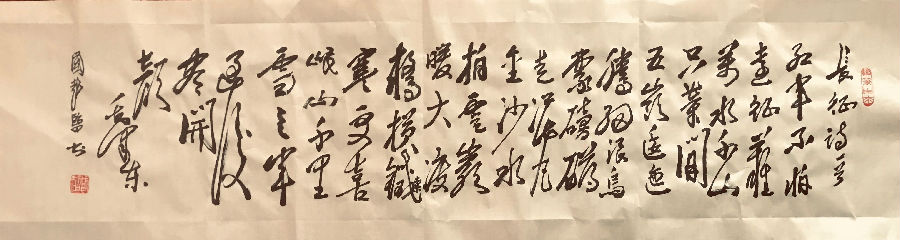 長征詩
红军不怕
遠征難
萬水千山
只等閒
五嶺逶迤
騰細浪烏
蒙磅礴
走泥丸
金沙水
拍雲崖
暖大渡
橋橫鐵
寒更喜
岷山千里
雪三軍
過後
盡開
顏
毛澤東